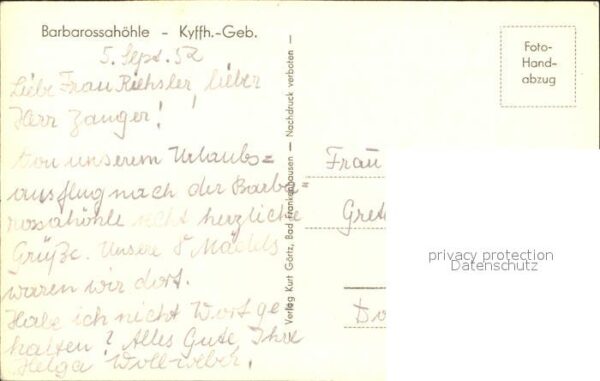 Barbarossahöhle - Kyffh.-Geb.
5. Sept. 52
Liebe Frau Riehsler, lieber
Herr Zanger!
Von unserem Urlaubs=
ausflug nach der Barba=
rossahöhle recht herzliche
Grüße. Unsere 8 Mädels
waren wir dort.
Habe ich nicht Wort ge
halten? Alles Gute Ihre
Helga Woll-weber.
Verlag Kurt Görtz, Bad Frankenhausen — Nachdruck verboten —
Foto-
Hand-
abzug
Frau
Gret
Do
privacy protection
Datenschutz